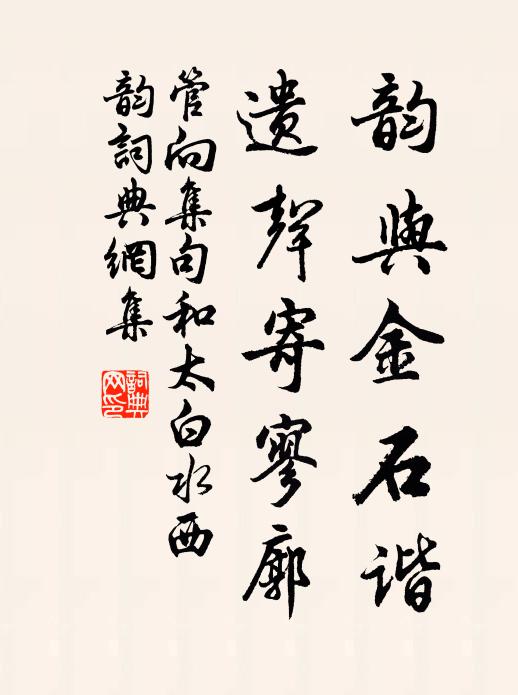 韵與金石谐
遺聲寄寥廓
管向集句和太白水西
韵詞典網集
詞典
网印